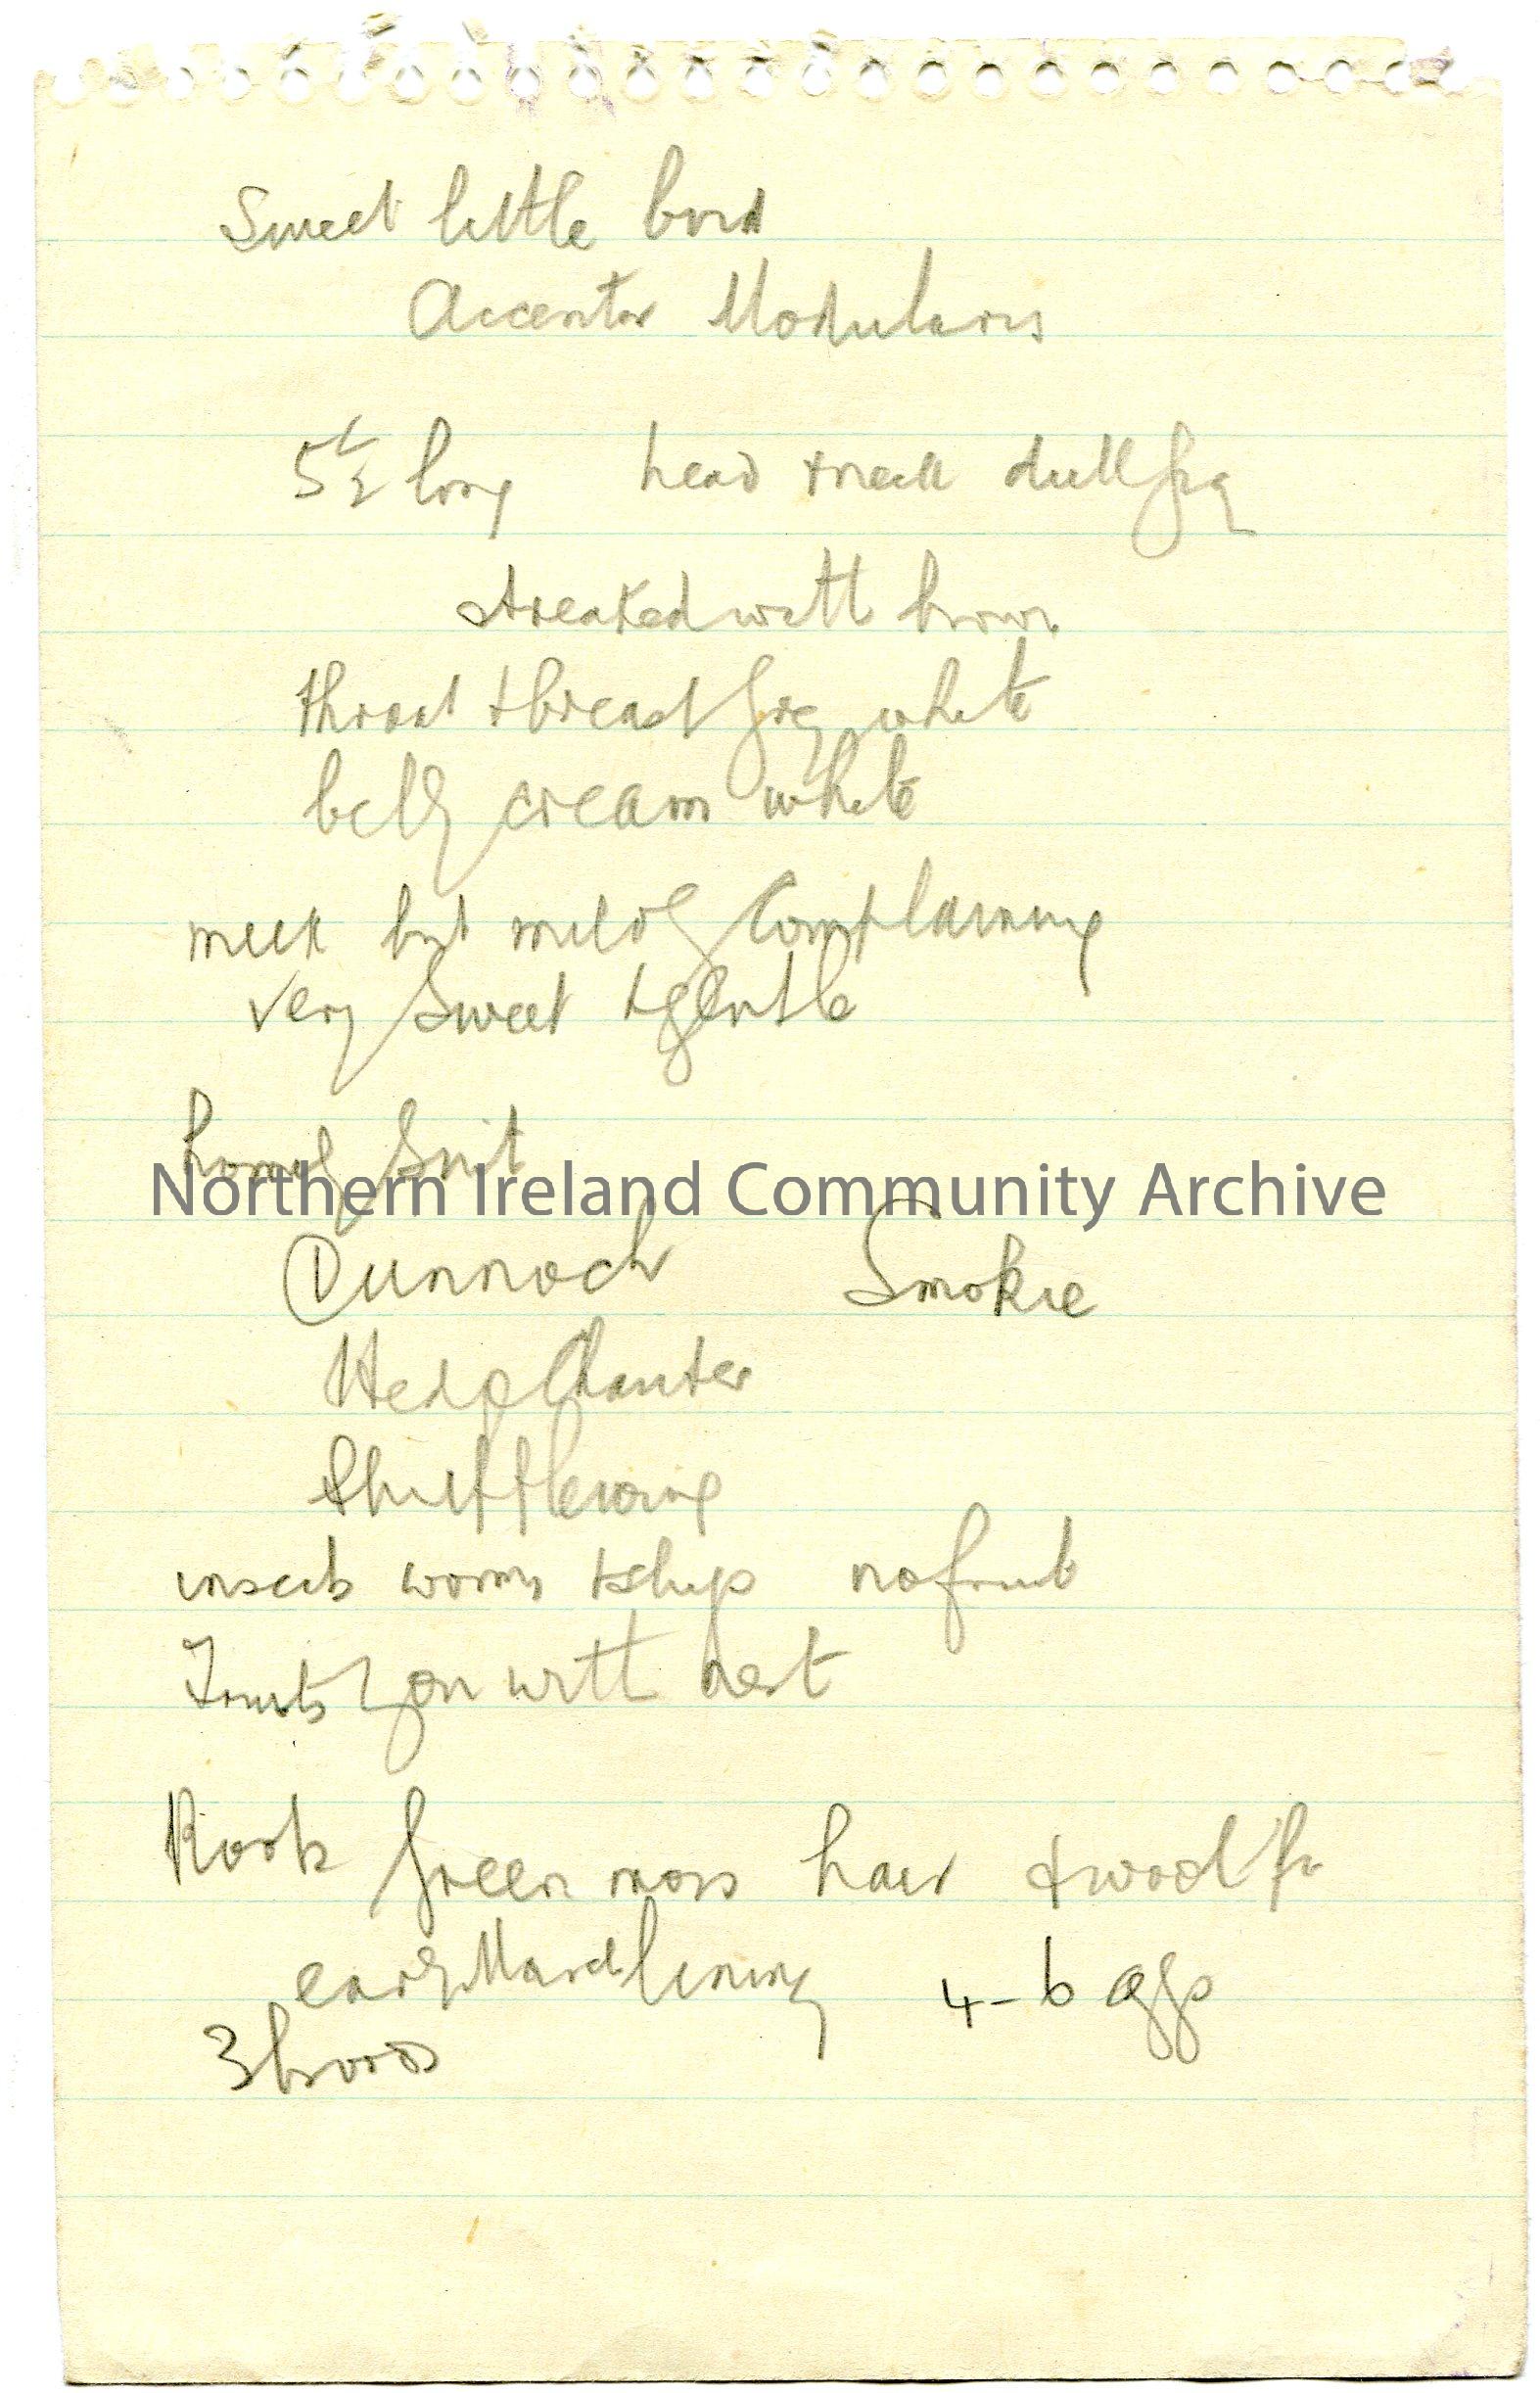 Sweet little bird
Accentor Modularis
5½ long head + neck dull grey
streaked with brown
throat + breast grey white
belly cream white
meek but mildly complaining
very sweet + gentle
homely suit
Northern Ireland Community Archive
Dunnoch Smokie
Hedge Chanter
Shufflewing
insects worms + slugs no fruit
Trusts you with nest
Roots green moss hair + wool for
early March lining 4-6 eggs
3 broods